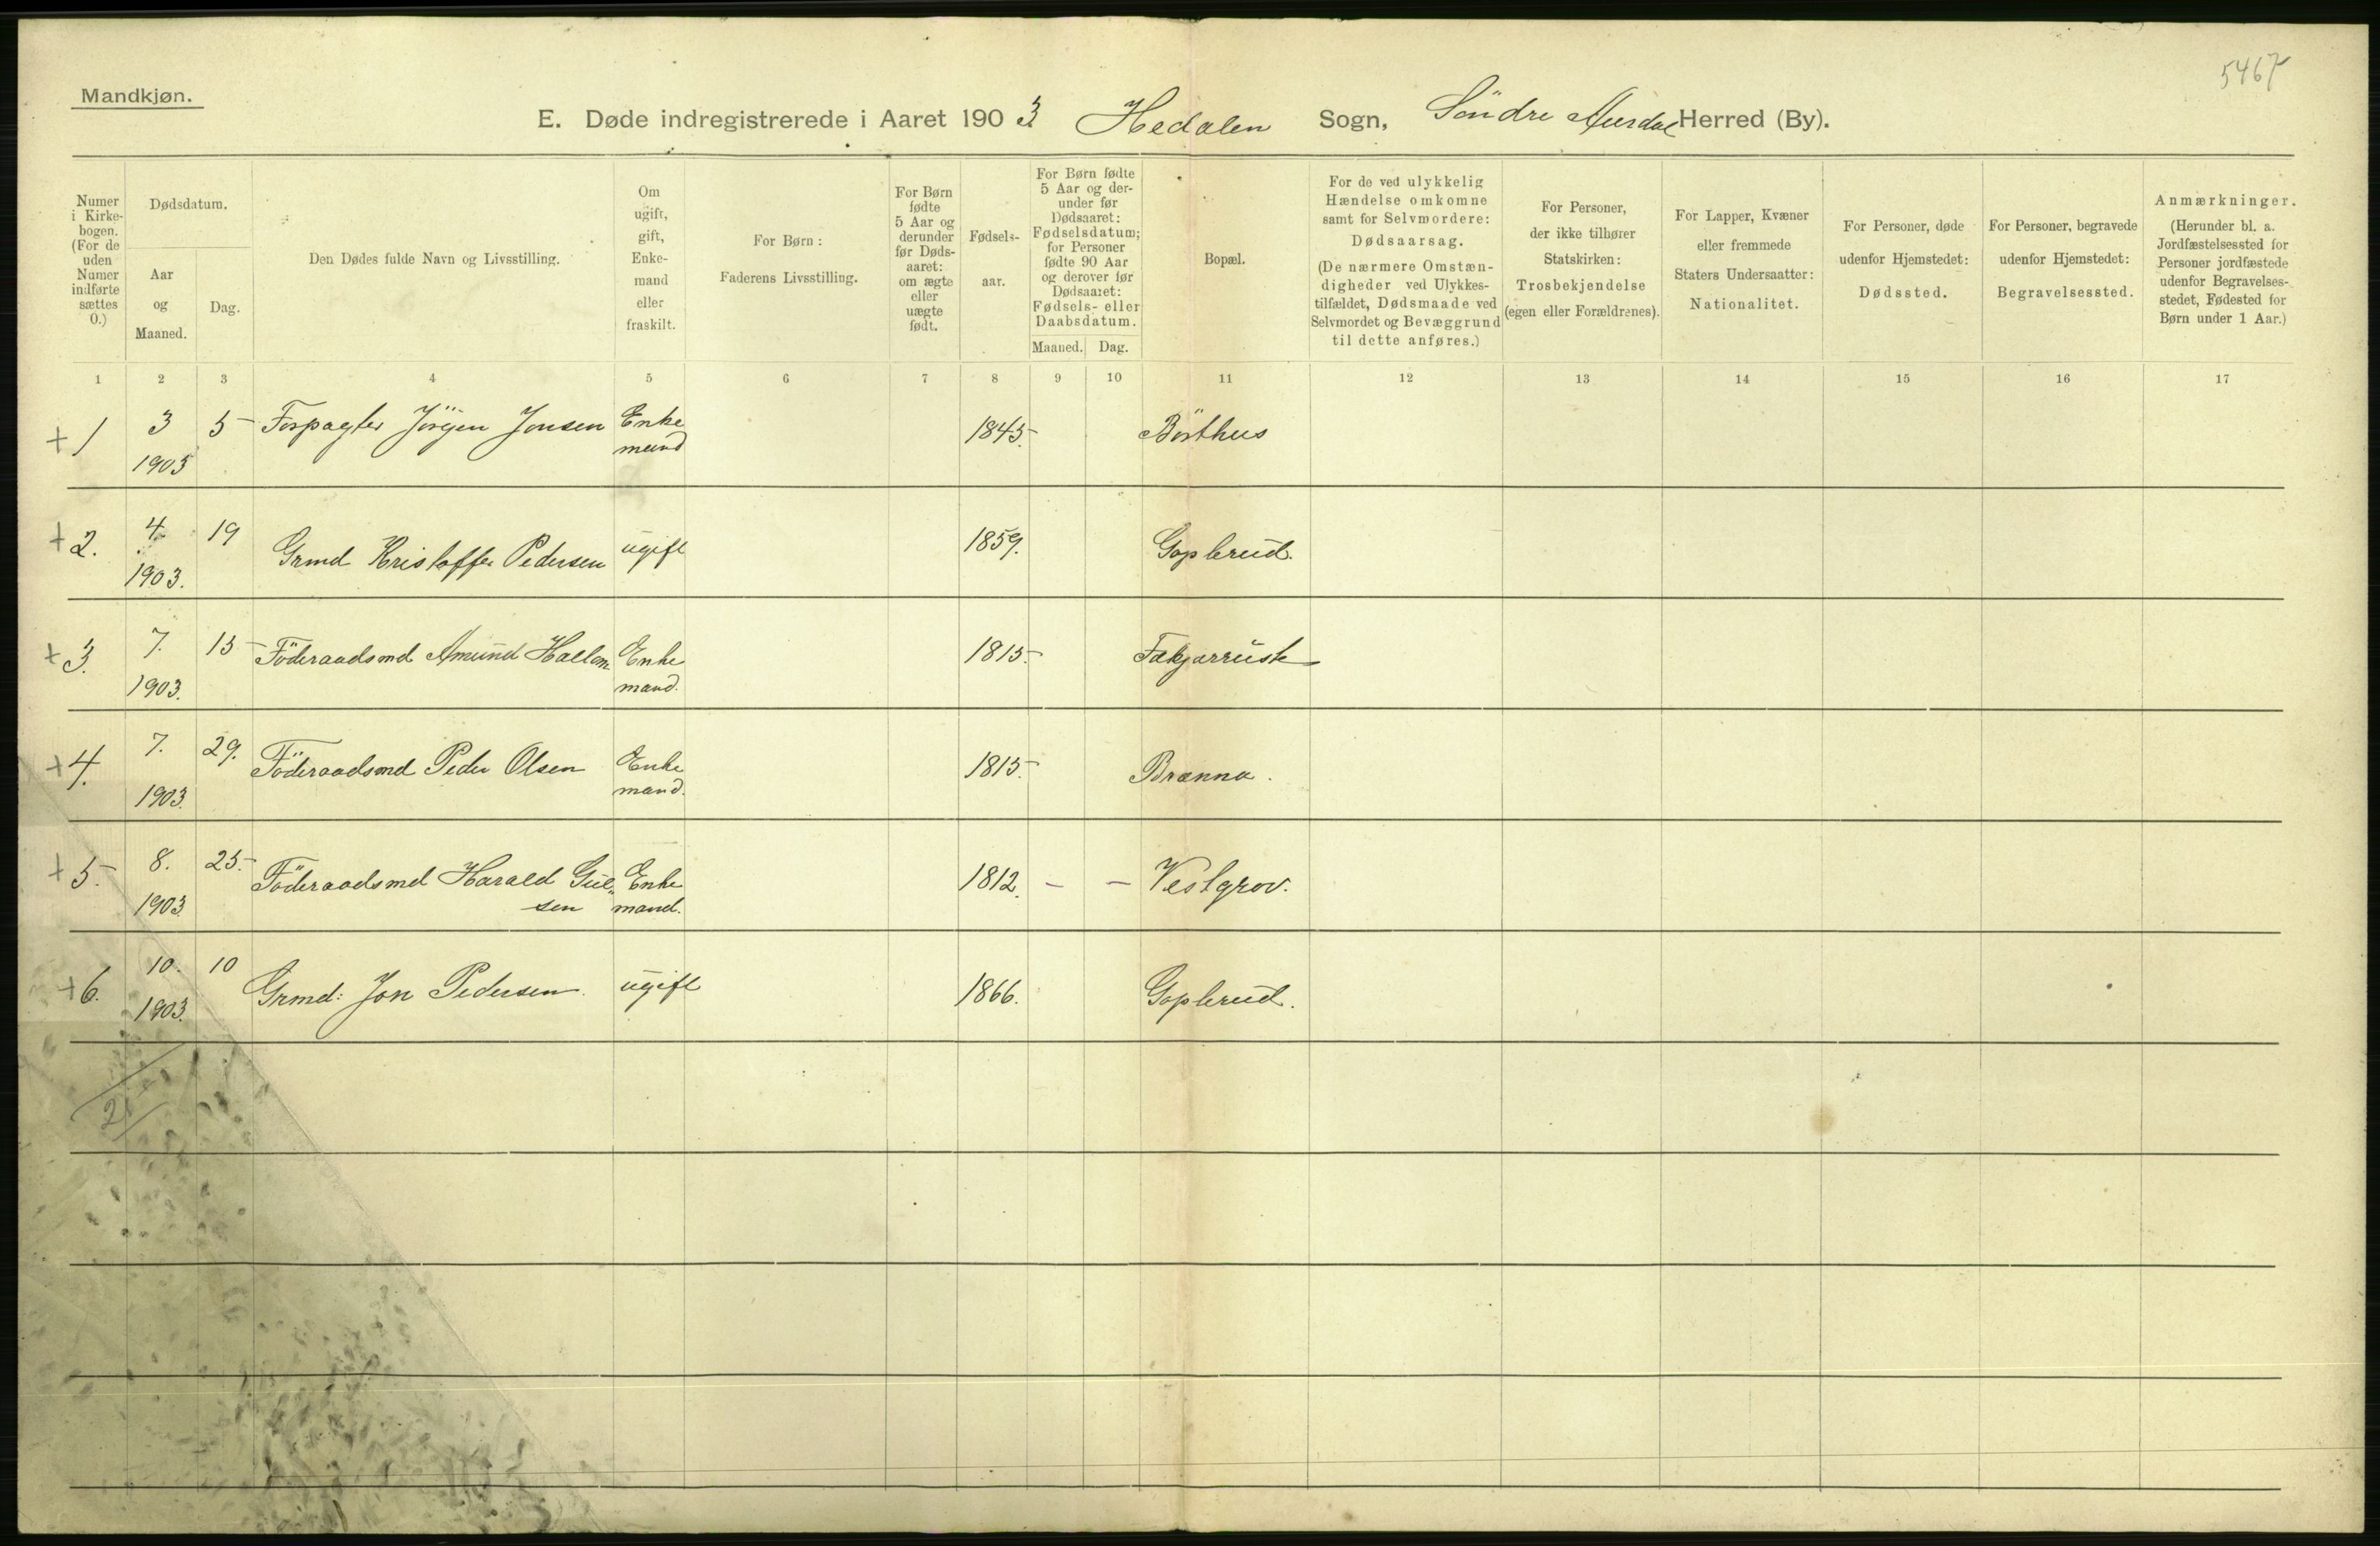 5467
Mandkjøn.
E. Døde indregistrerede i Aaret 1903 Hedalen Sogn, Söndre Aurdal Herred (By).
Numer
i Kirke-
bogen.
(For de
uden
Numer
indførte
sættes
0.)
Dødsdatum.
Aar
og
Maaned.
Dag.
Den Dødes fulde Navn og Livsstilling.
Om
ugift,
gift,
Enke-
mand
eller
fraskilt.
For Børn:
Faderens Livsstilling.
For Børn
fødte
5 Aar og
derunder
før Døds-
aaret:
om ægte
eller
uægte
født.
Fødsels-
aar.
For Børn fødte
5 Aar og der-
under før
Dødsaaret:
Fødselsdatum;
for Personer
fødte 90 Aar
og derover før
Dødsaaret:
Fødsels- eller
Daabsdatum.
Maaned. Dag.
Bopæl.
For de ved ulykkelig
Hændelse omkomne
samt for Selvmordere:
Dødsaarsag.
(De nærmere Omstæn-
digheder ved Ulykkes-
tilfældet, Dødsmaade ved
Selvmordet og Bevæggrund
til dette anføres.)
For Personer,
der ikke tilhører
Statskirken:
Trosbekjendelse
(egen eller Forældrenes).
For Lapper, Kvæner
eller fremmede
Staters Undersaatter:
Nationalitet.
For Personer, døde
udenfor Hjemstedet:
Dødssted.
For Personer, begravede
udenfor Hjemstedet:
Begravelsessted.
Anmærkninger.
(Herunder bl. a.
Jordfæstelsessted for
Personer jordfæstede
udenfor Begravelses-
stedet, Fødested for
Børn under 1 Aar.)
1 2 3 4 5 6 7 8 9 10 11 12 13 14 15 16 17
+ 1 3 5 Forpagter Jörgen Jonsen Enke 1845. Börthus
1903 mand
+ 2. 4. 19 Grmd Kristoffer Pedersen ugift 1859. Goplerud.
1903.
+ 3. 7. 15 Föderaadsmd Amund Enke 1815.
1903. mand.
+ 4. 7. 29. Föderaadsmd Peder Olsen Enke 1815. Brænna.
1903. mand.
+ 5. 8. 25. Föderaadsmd Harald Gul„ Enke 1812. - - Vestgrov.
1903 sen mand.
+ 6. 10. 10 Grmd: Jon Pedersen. ugift 1866. Goplerud.
1903.
2